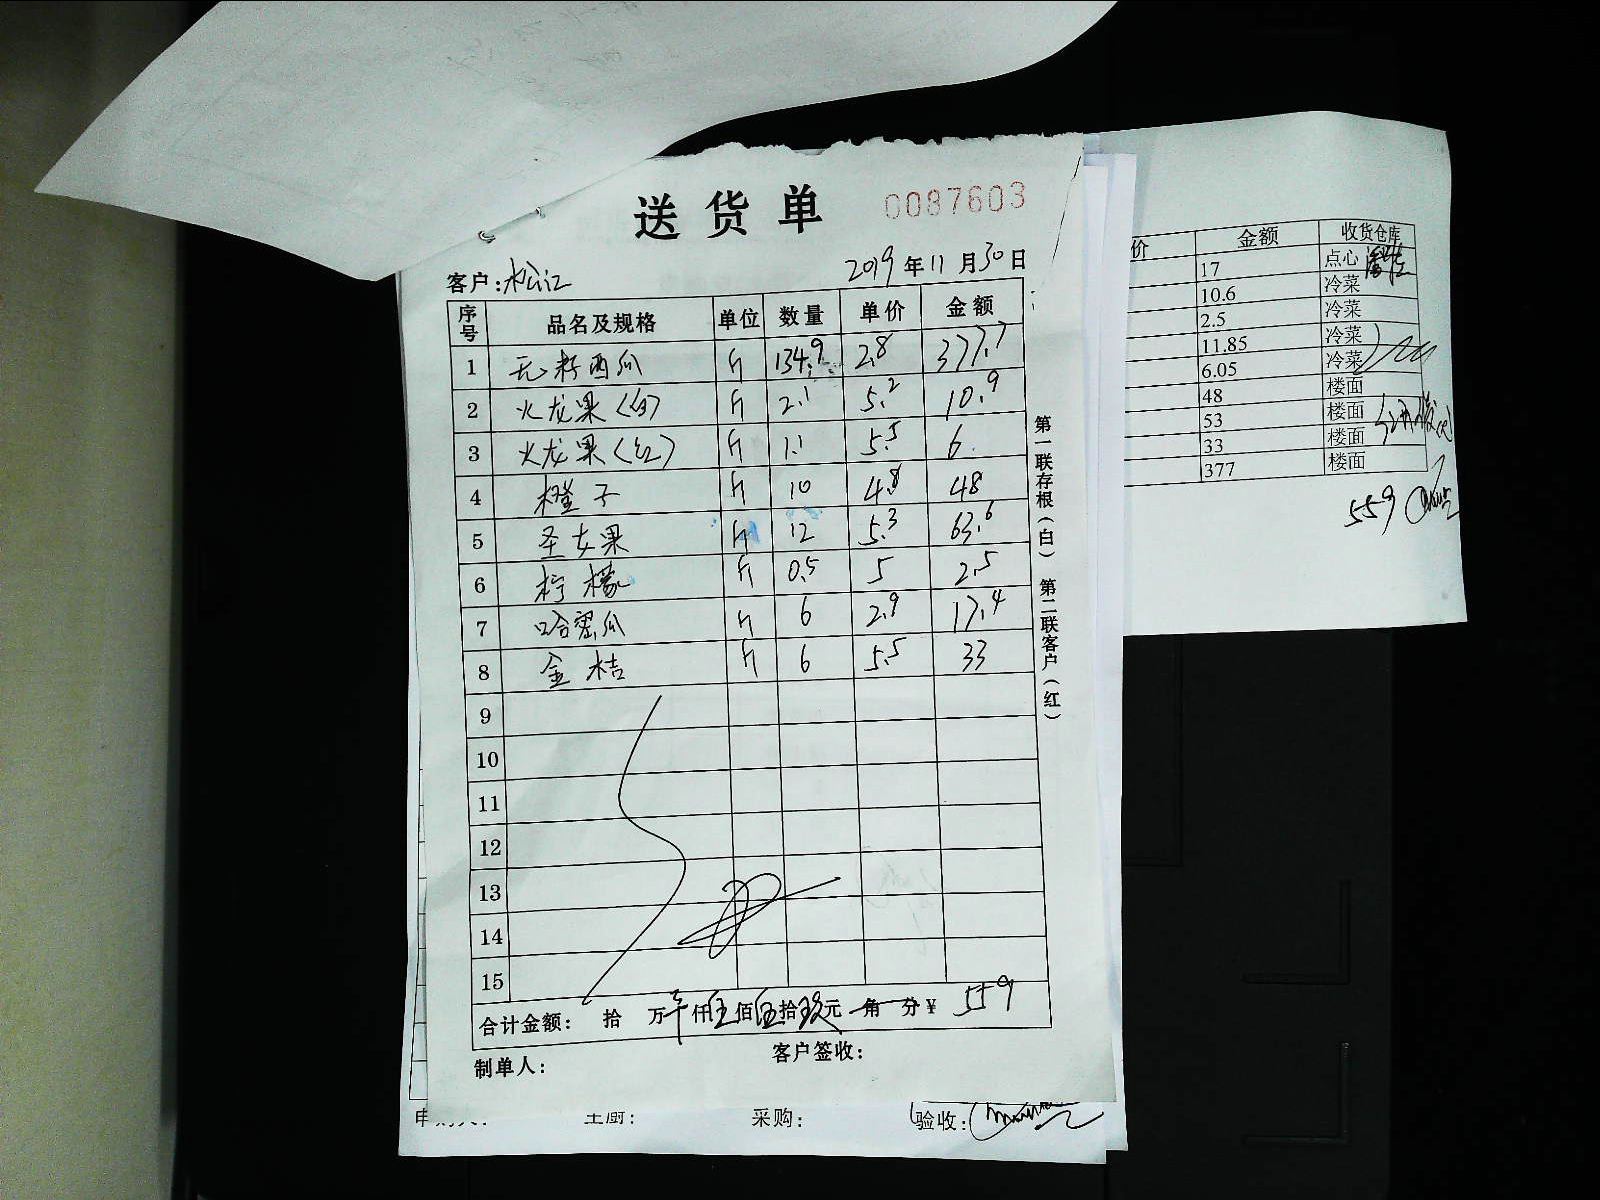 送货单 0087603
客户:松江 2019年11月30日
序号 品名及规格 单位 数量 单价 金额
1 无籽西瓜 斤 134.9 2.8 377.7
2 火龙果(白) 斤 2.1 5.2 10.9
3 火龙果(红) 斤 1.1 5.5 6.
4 橙子 斤 10 4.8 48
5 圣女果 斤 12 5.3 63.6
6 柠檬 斤 0.5 5 2.5
7 哈密瓜 斤 6 2.9 17.4
8 金桔 斤 6 5.5 33
9
10
11
12
13
14
15
合计金额: 拾 万 仟伍佰伍拾玖元 角 分¥ 559
制单人: 客户签收:
第一联存根(白) 第二联客户(红)
主厨: 采购: 验收:
价 金额 收货仓库
17 点心
10.6 冷菜
2.5 冷菜
11.85 冷菜
6.05 冷菜
48 楼面
53 楼面
33 楼面
377 楼面
559